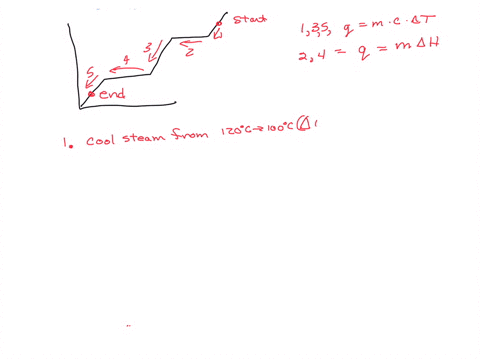 start
1
2
3
4
5
end
1,3,5, q = m·c·ΔT
2,4 = q = mΔH
1. cool steam from 120°C→100°C (Δ